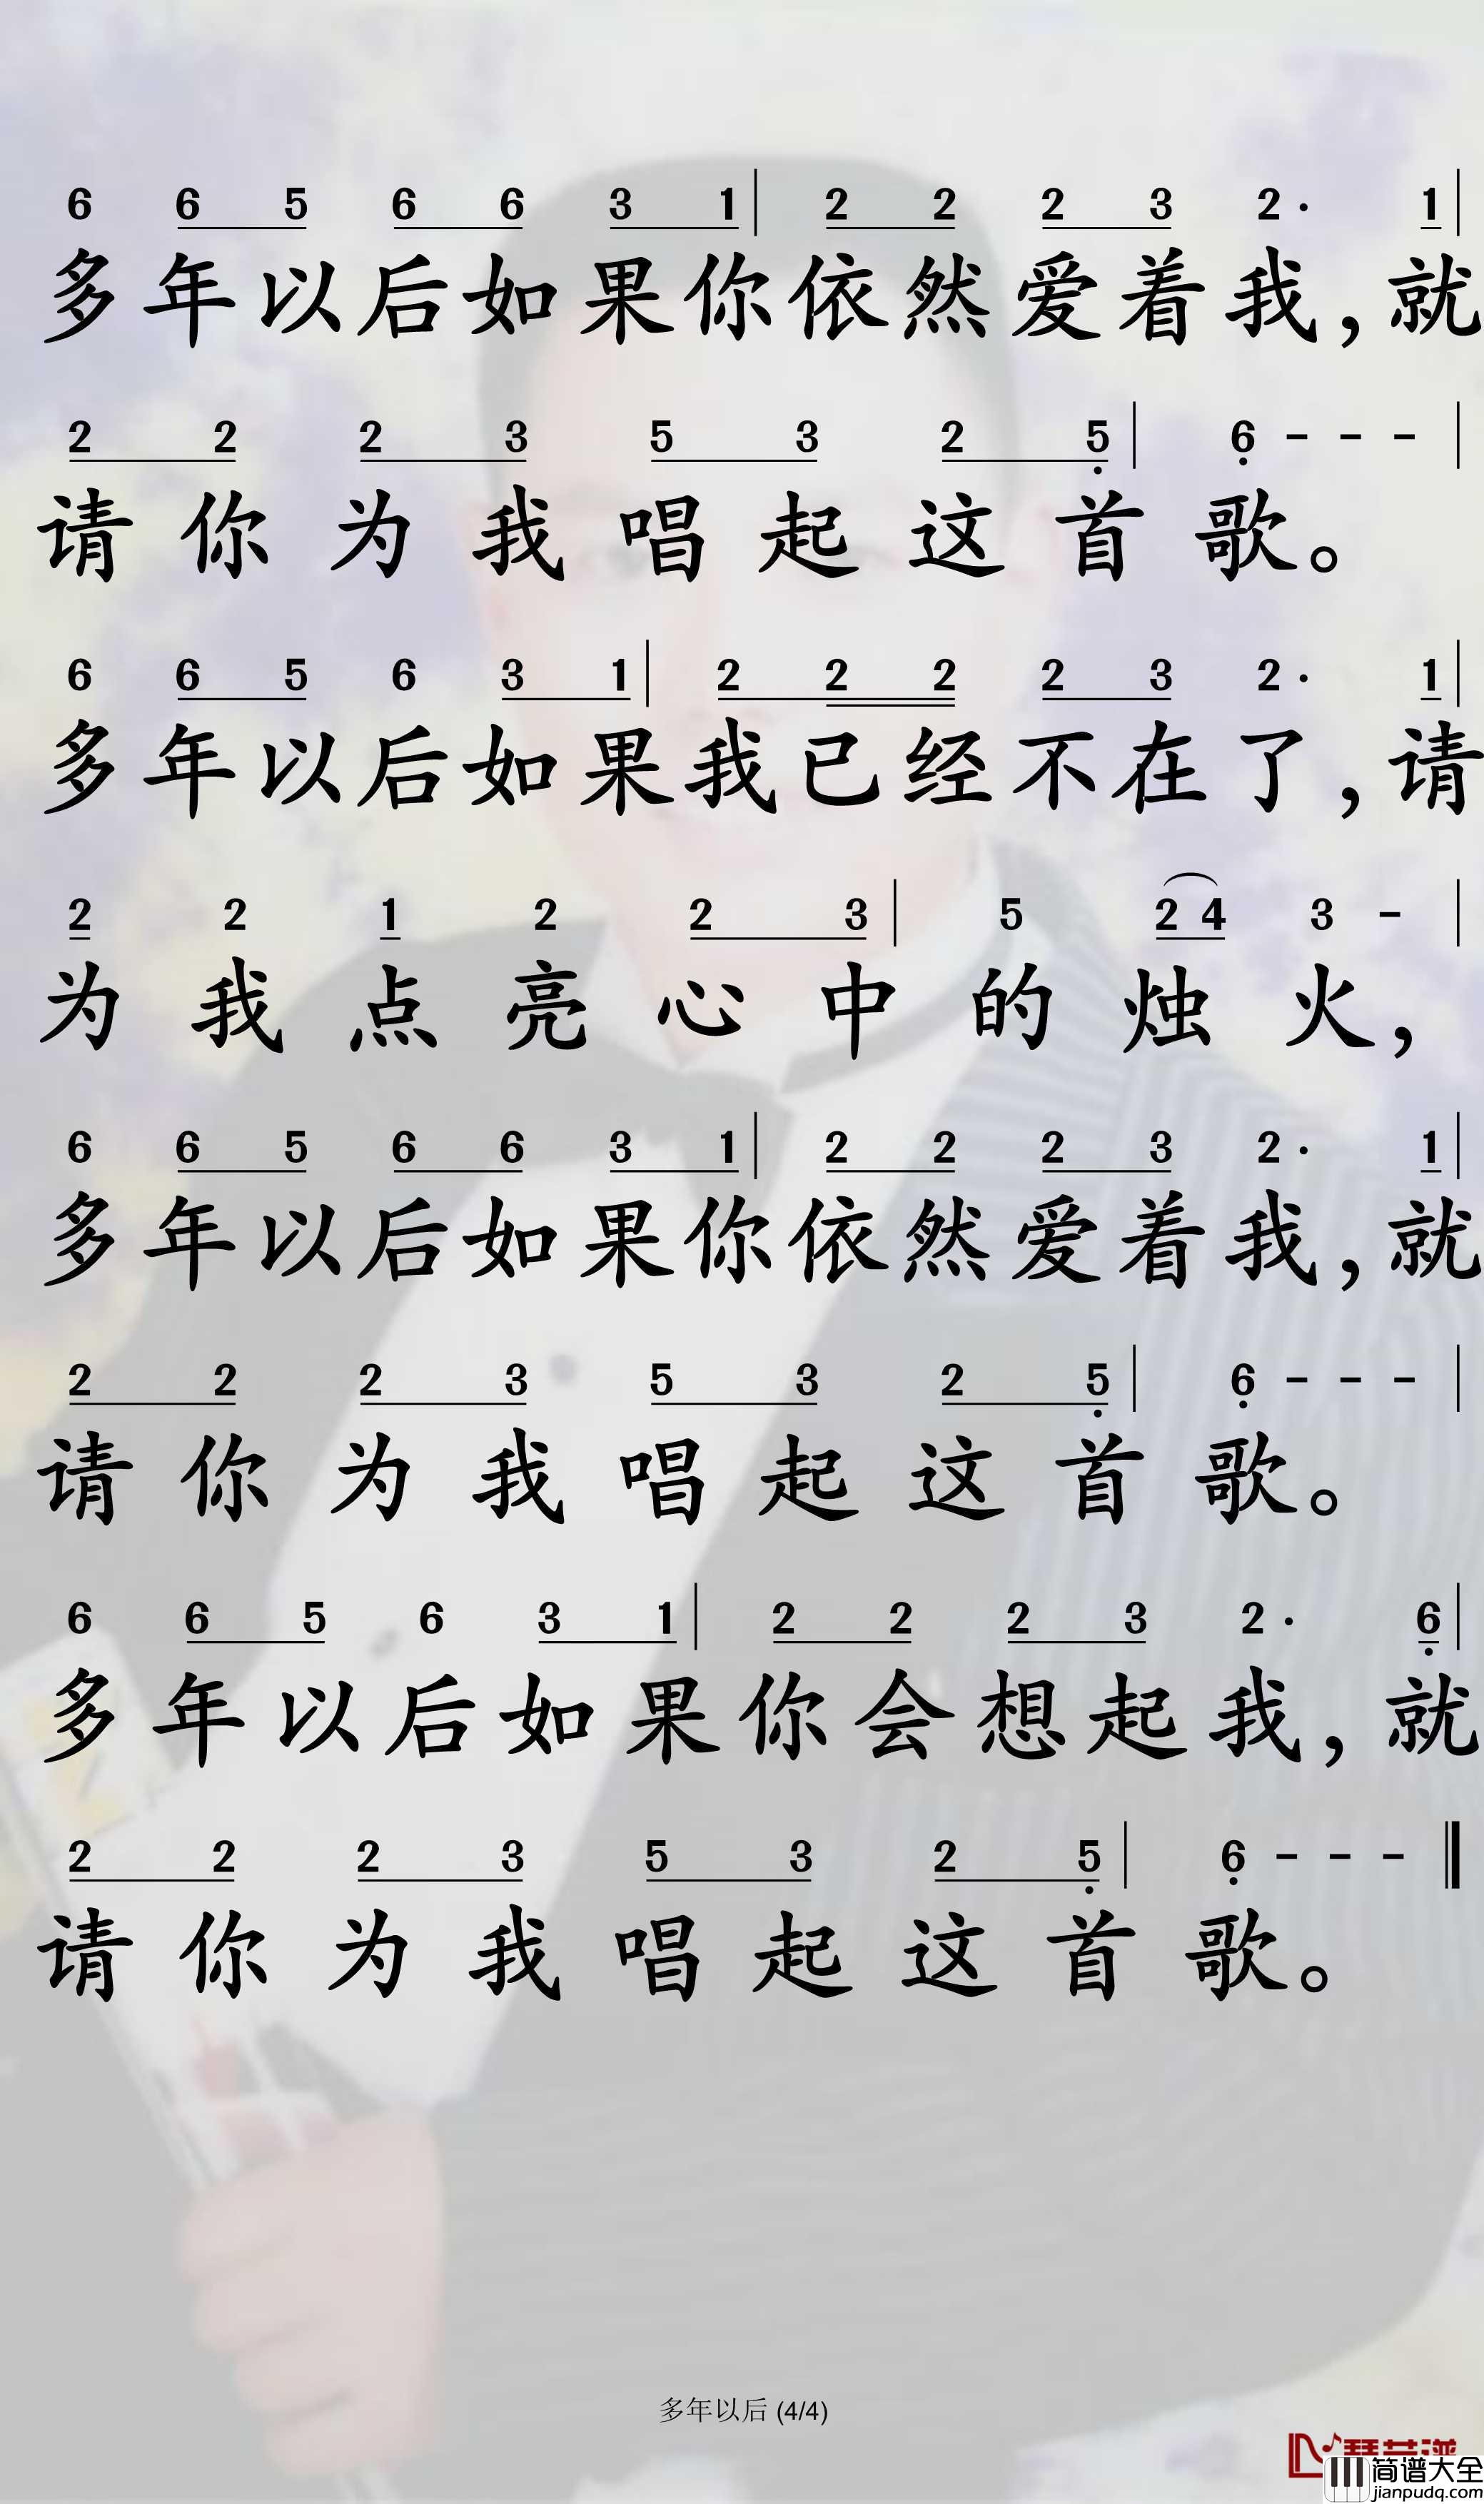 6 6 5 6 6 3 1 | 2 2 2 3 2 · 1 |
多年以后如果你依然爱着我，就
2 2 2 3 5 3 2 5 | 6 - - - |
请你为我唱起这首歌。
6 6 5 6 3 1 | 2 2 2 2 3 2 · 1 |
多年以后如果我已经不在了，请
2 2 1 2 2 3 | 5 2 4 3 - |
为我点亮心中的烛火，
6 6 5 6 6 3 1 | 2 2 2 3 2 · 1 |
多年以后如果你依然爱着我，就
2 2 2 3 5 3 2 5 | 6 - - - |
请你为我唱起这首歌。
6 6 5 6 3 1 | 2 2 2 3 2 · 6 |
多年以后如果你会想起我，就
2 2 2 3 5 3 2 5 | 6 - - - ‖
请你为我唱起这首歌。
多年以后 (4/4)
简谱大全
jianpudq.com